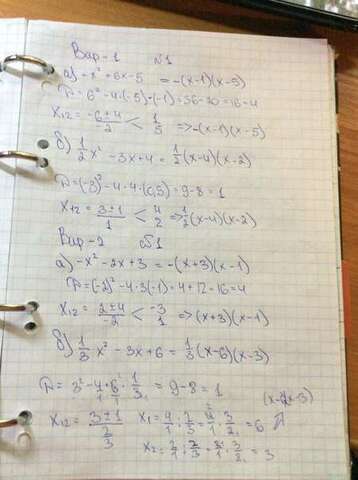 Вар-1 №1
а) -x² + 6x - 5 = -(x-1)(x-5)
D = 6² - 4·(-5)·(-1) = 36 - 20 = 16 = 4
X₁,₂ = (-6±4)/(-2) < 1 5 => -(x-1)(x-5)
б) 1/2 x² - 3x + 4 = 1/2 (x-4)(x-2)
D = (-3)² - 4·4·(0,5) = 9 - 8 = 1
X₁,₂ = (3±1)/1 < 4 2 => 1/2 (x-4)(x-2)
Вар-2 №1
а) -x² - 2x + 3 = -(x+3)(x-1)
D = (-2)² - 4·3·(-1) = 4 + 12 = 16 = 4
X₁,₂ = (2±4)/(-2) < -3 1 => (x+3)(x-1)
б) 1/3 x² - 3x + 6 = 1/3 (x-6)(x-3)
D = 3² - 4/1 · 6/1 · 1/3 = 9 - 8 = 1
X₁,₂ = (3±1)/(2/3) X₁ = 4/1 : 2/3 = 4/1 · 3/2 = 6
X₂ = 2/1 : 2/3 = 2/1 · 3/2 = 3